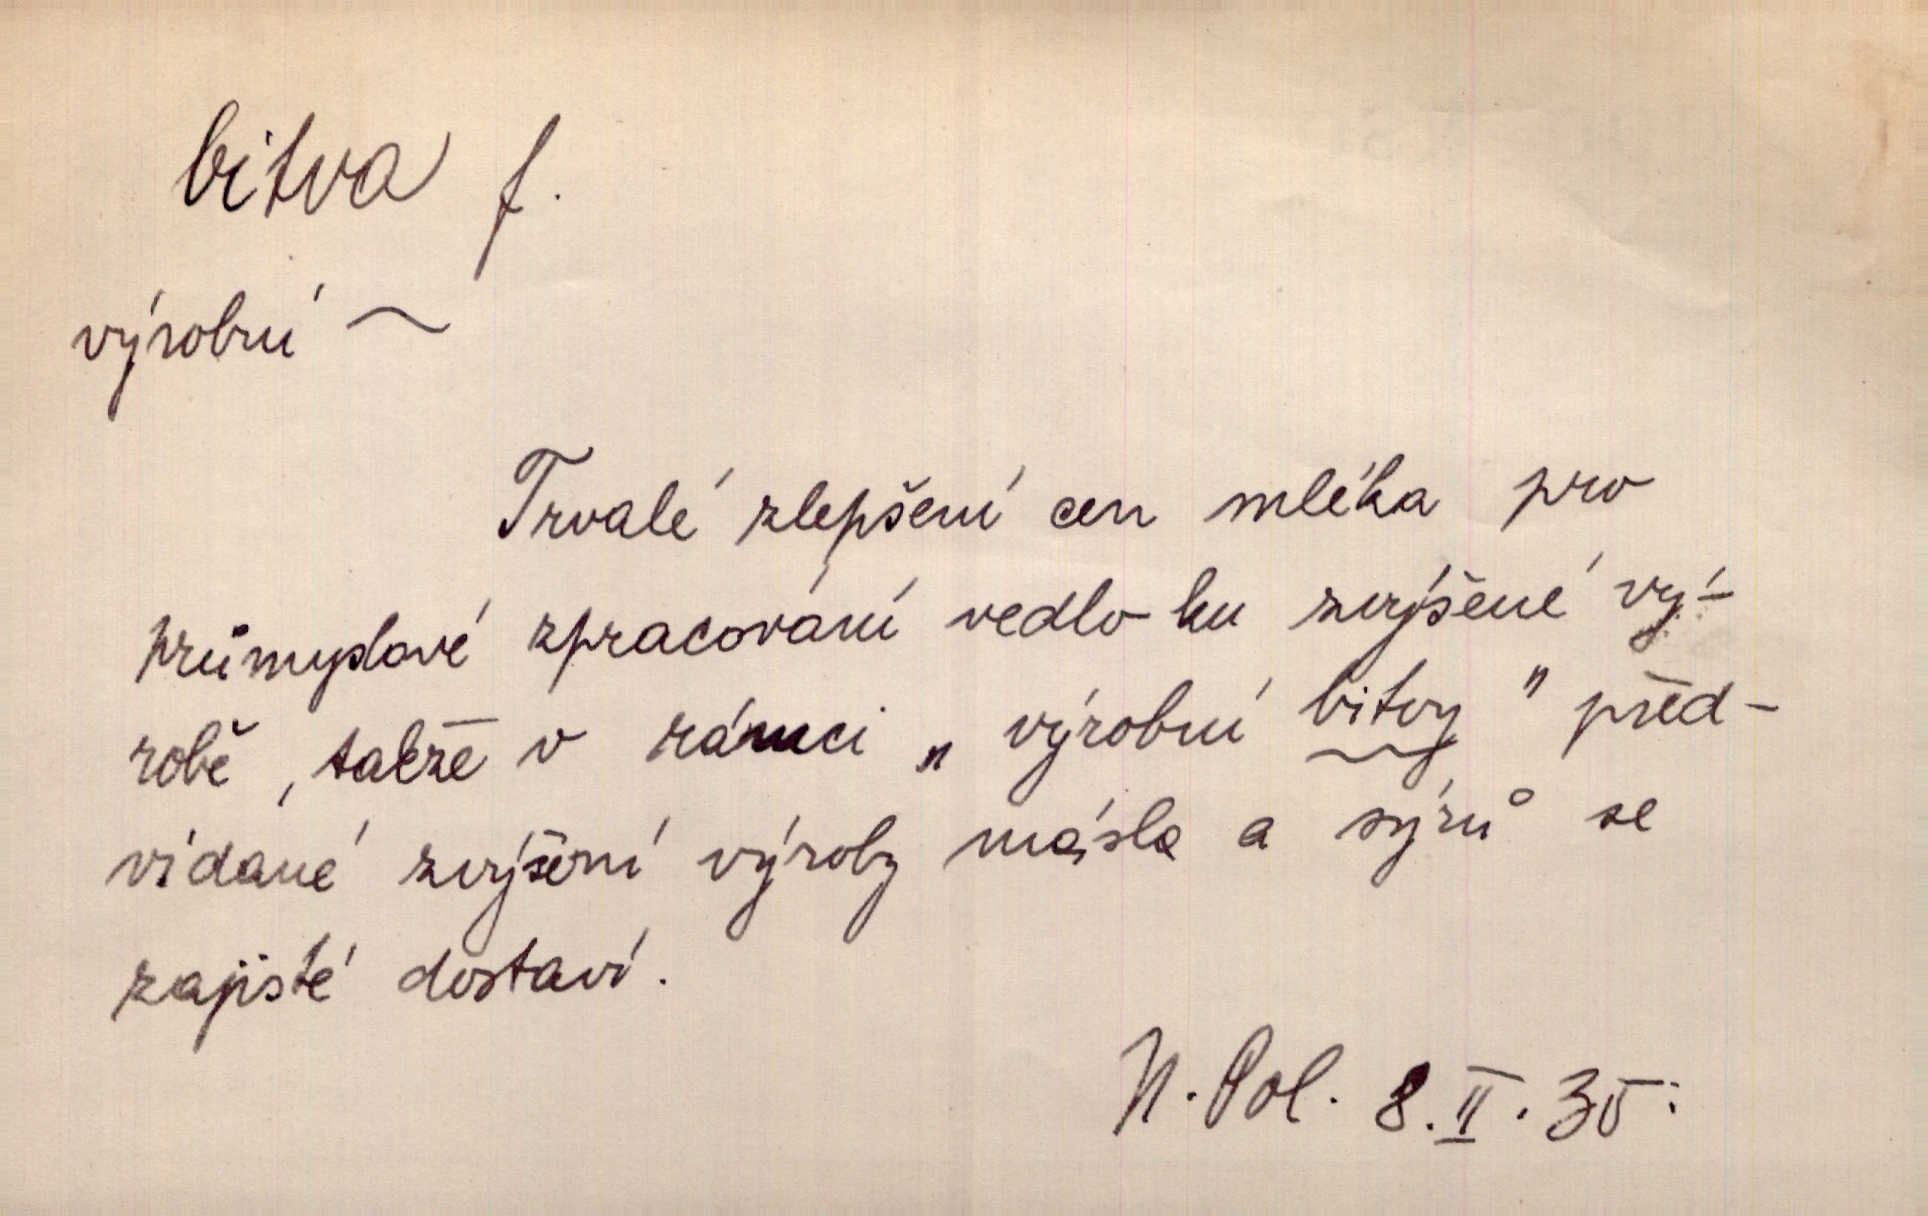 bitva f.
výrobní ~
Trvalé zlepšení cen mléka pro
průmyslové zpracování vedlo ku zvýšené vý-
robě, takže v rámci „výrobní bitvy" před-
vídané zvýšení výroby másla a sýrů se
zajisté dostaví.
N. Pol. 8. II. 35.